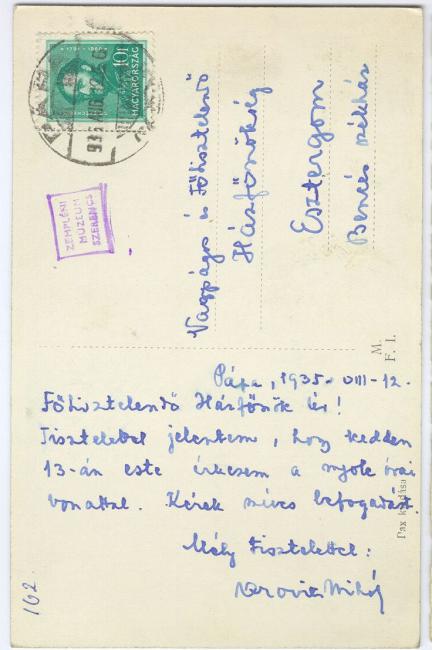 10f
MAGYARORSZÁG
ZEMPLÉNI
MUZEUM
SZERENCS
Nagyságos és Főtisztelendő
Házfőnökség
Esztergom
Bencés székház
M.
F. I.
Pax kiadása
Pápa, 1935. VIII-12.
Főtisztelendő Házfőnök Úr!
Tisztelettel jelentem, hogy kedden
13-án este érkezem a nyolc órai
vonattal. Kérek szíves befogadást
Mély tisztelettel:
Mihály
162.